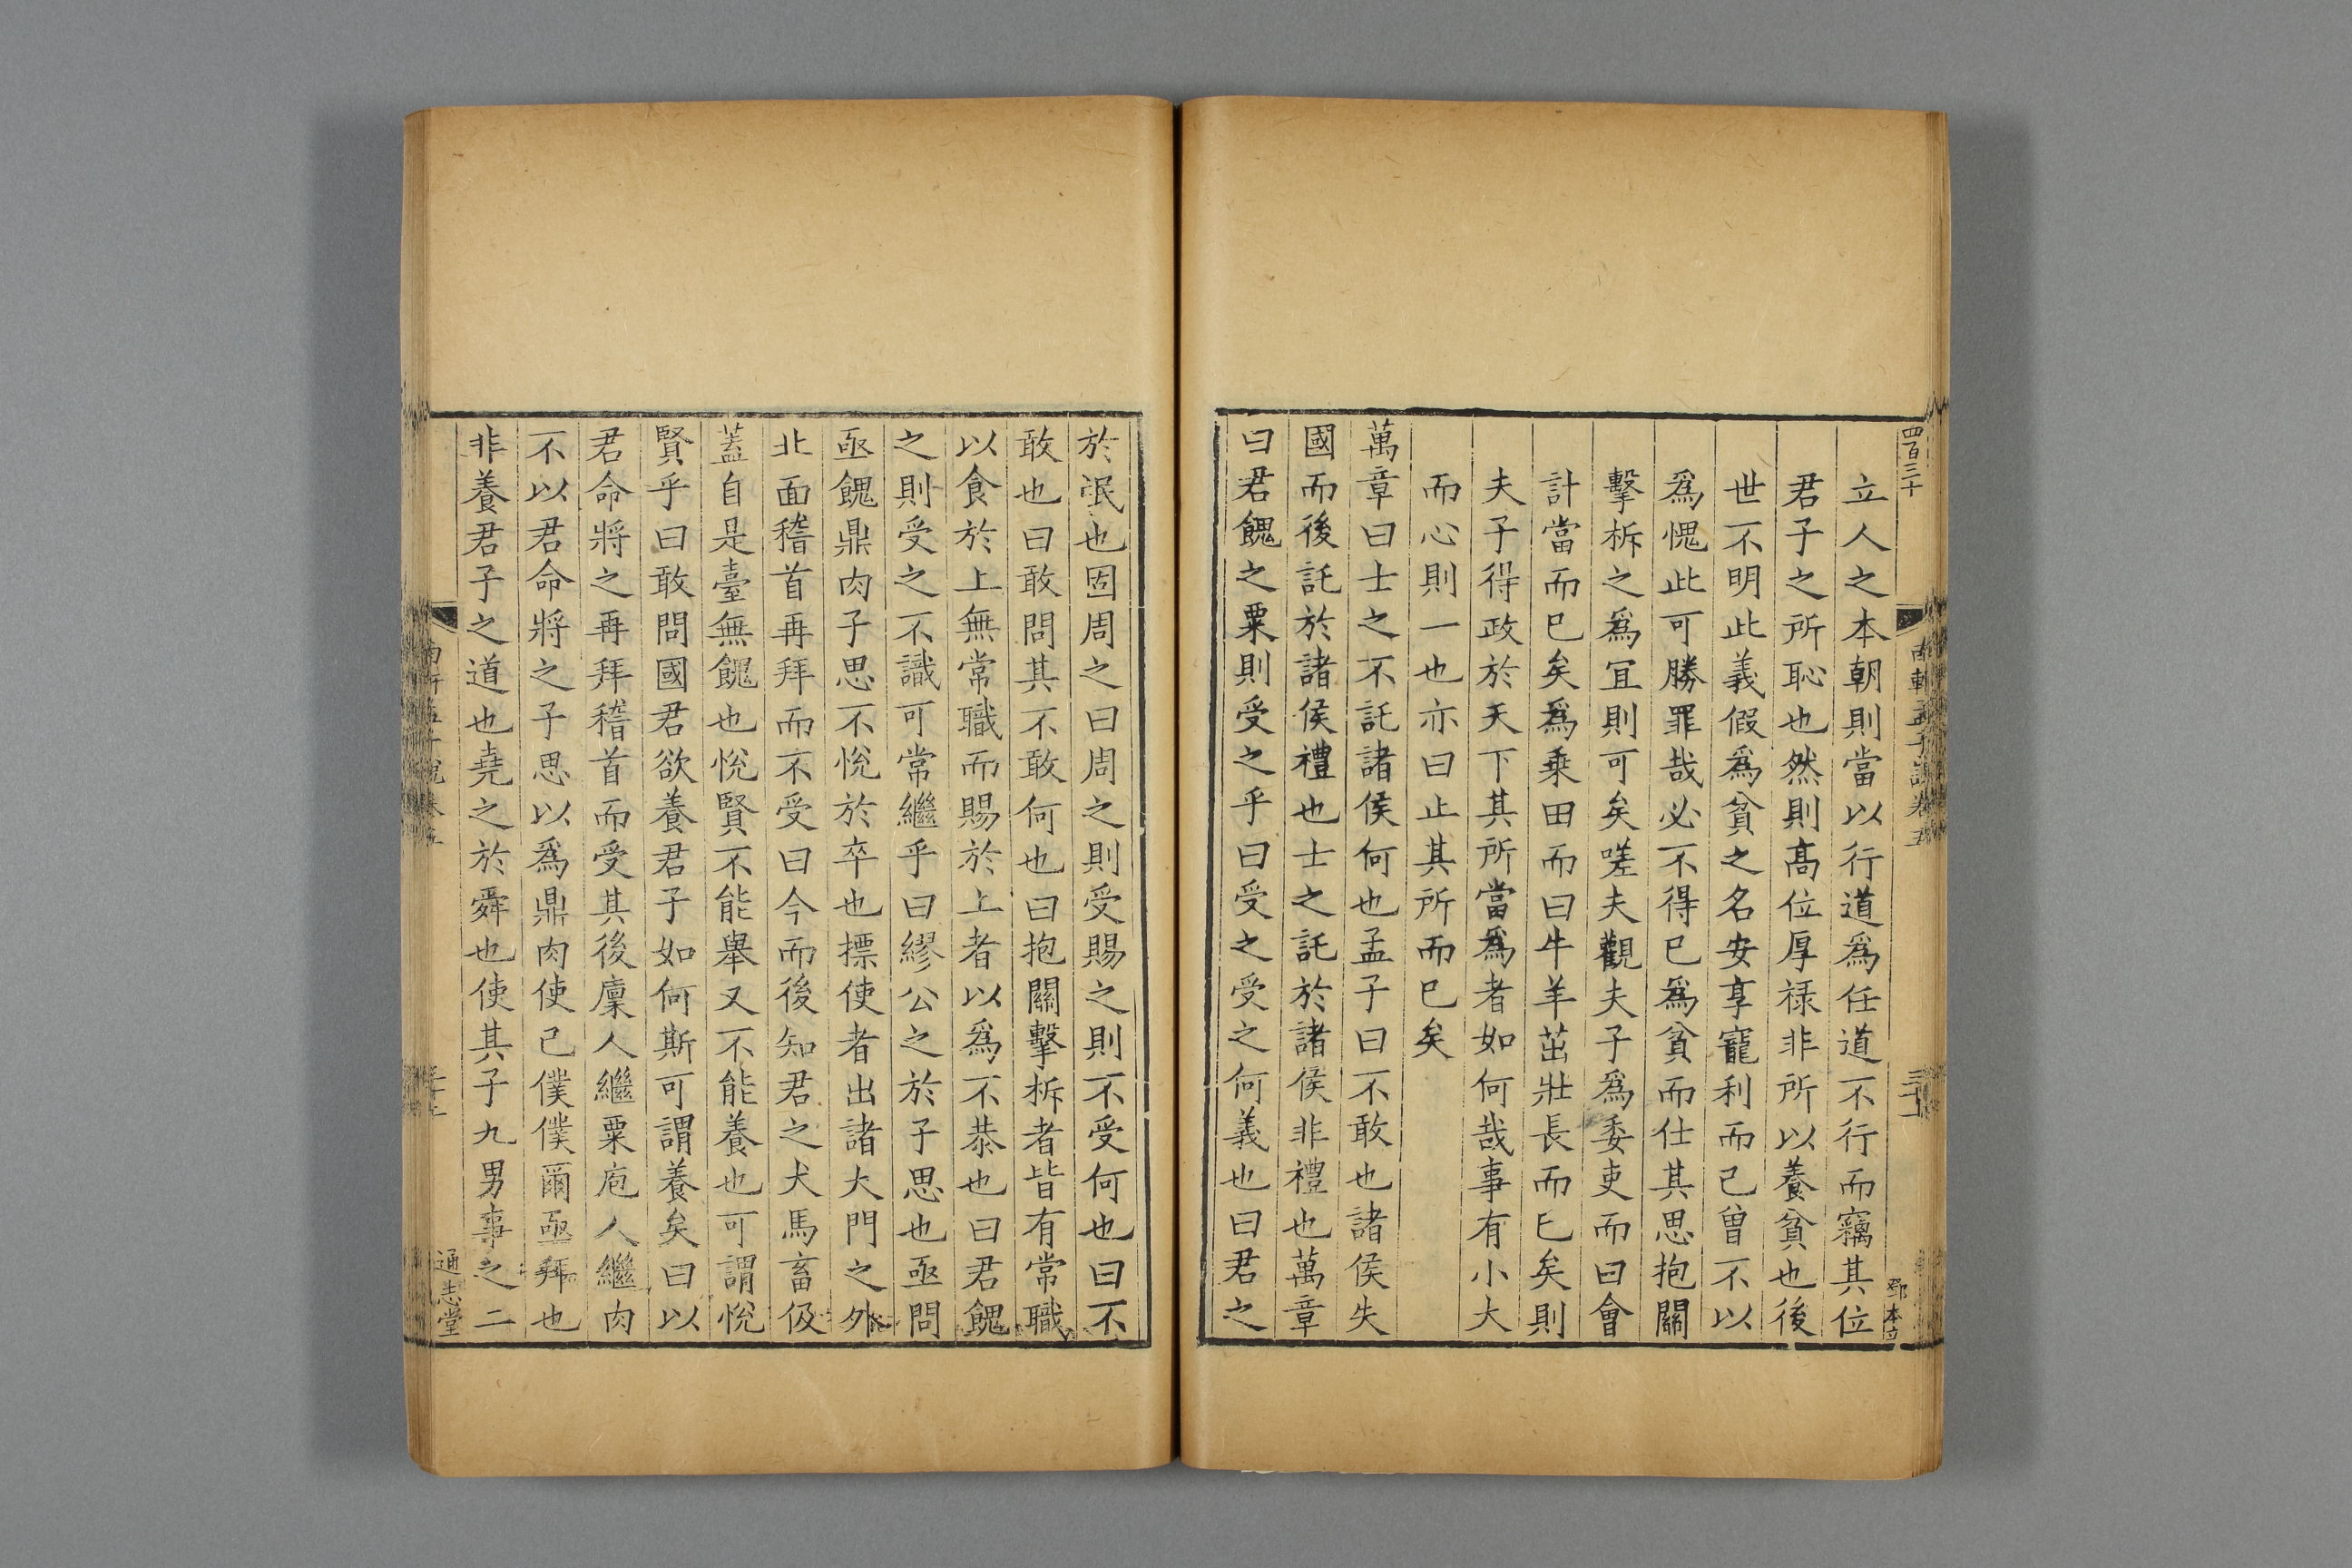 四百三十
立人之本朝則當以行道爲任道不行而竊其位
君子之所恥也然則高位厚祿非所以養貧也後
世不明此義假爲貧之名安享寵利而已曾不以
爲愧此可勝罪哉必不得已爲貧而仕其思抱關
擊柝之爲宜則可矣嗟夫觀夫子爲委吏而曰會
計當而已矣爲乗田而曰牛羊茁壯長而已矣則
夫子得政於天下其所當爲者如何哉事有小大
而心則一也亦曰止其所而已矣
萬章曰士之不託諸侯何也孟子曰不敢也諸侯失
國而後託於諸侯禮也士之託於諸侯非禮也萬章
曰君餽之粟則受之乎曰受之受之何義也曰君之
鄧本立
於氓也固周之曰周之則受賜之則不受何也曰不
敢也曰敢問其不敢何也曰抱關擊柝者皆有常職
以食於上無常職而賜於上者以爲不恭也曰君餽
之則受之不識可常繼乎曰繆公之於子思也亟問
亟餽鼎肉子思不悅於卒也摽使者出諸大門之外
北面稽首再拜而不受曰今而後知君之犬馬畜伋
蓋自是臺無餽也悅賢不能舉又不能養也可謂悅
賢乎曰敢問國君欲養君子如何斯可謂養矣曰以
君命將之再拜稽首而受其後廩人繼粟庖人繼肉
不以君命將之子思以爲鼎肉使己僕僕爾亟拜也
非養君子之道也堯之於舜也使其子九男事之二
通志堂